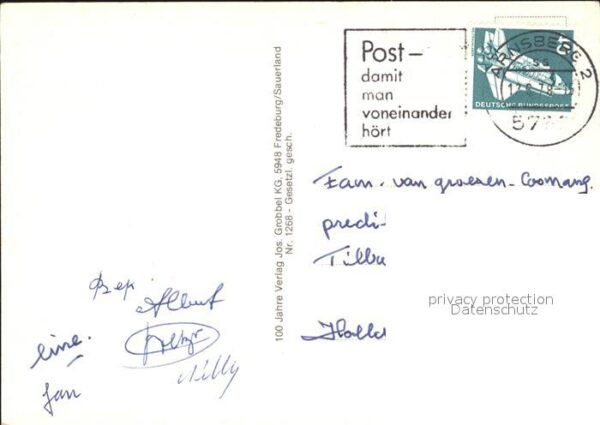 Post-
damit
man
voneinander
hört
ARNSBERG 2
DEUTSCHE BUNDESPOST
100 Jahre Verlag Jos. Grobbel KG, 5948 Fredeburg/Sauerland
Nr. 1268 - Gesetzl. gesch.
Fam. van groesen-Coomans.
predi
Tilbu
privacy protection
Datenschutz
Holla
Bep
Albert
line.
Willy
Jan